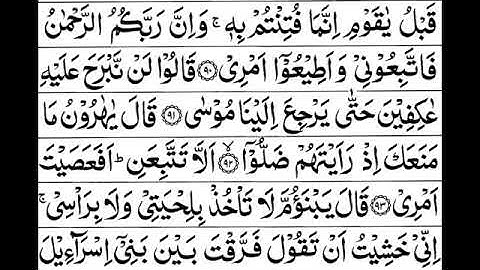 قَبۡلُ يٰقَوۡمِ اِنَّمَا فُتِنۡتُمۡ بِهٖ‌ۚ وَاِنَّ رَبَّكُمُ الرَّحۡمٰنُ
فَاتَّبِعُوۡنِىۡ وَ اَطِيۡعُوۡۤا اَمۡرِىۡ ﴿۹۰﴾ قَالُوۡا لَنۡ نَّبۡرَحَ عَلَيۡهِ
عٰكِفِيۡنَ حَتّٰى يَرۡجِعَ اِلَيۡنَا مُوۡسٰى ﴿۹۱﴾ قَالَ يٰهٰرُوۡنُ مَا
مَنَعَكَ اِذۡ رَاَيۡتَهُمۡ ضَلُّوۡۤا ۙ﴿۹۲﴾ اَلَّا تَتَّبِعَنِ‌ؕ اَفَعَصَيۡتَ
اَمۡرِىۡ ﴿۹۳﴾ قَالَ يَبۡنَؤُمَّ لَا تَاۡخُذۡ بِلِحۡيَتِىۡ وَلَا بِرَاۡسِىۡ‌ۚ
اِنِّىۡ خَشِيۡتُ اَنۡ تَقُوۡلَ فَرَّقۡتَ بَيۡنَ بَنِىۡۤ اِسۡرَآءِيۡلَ